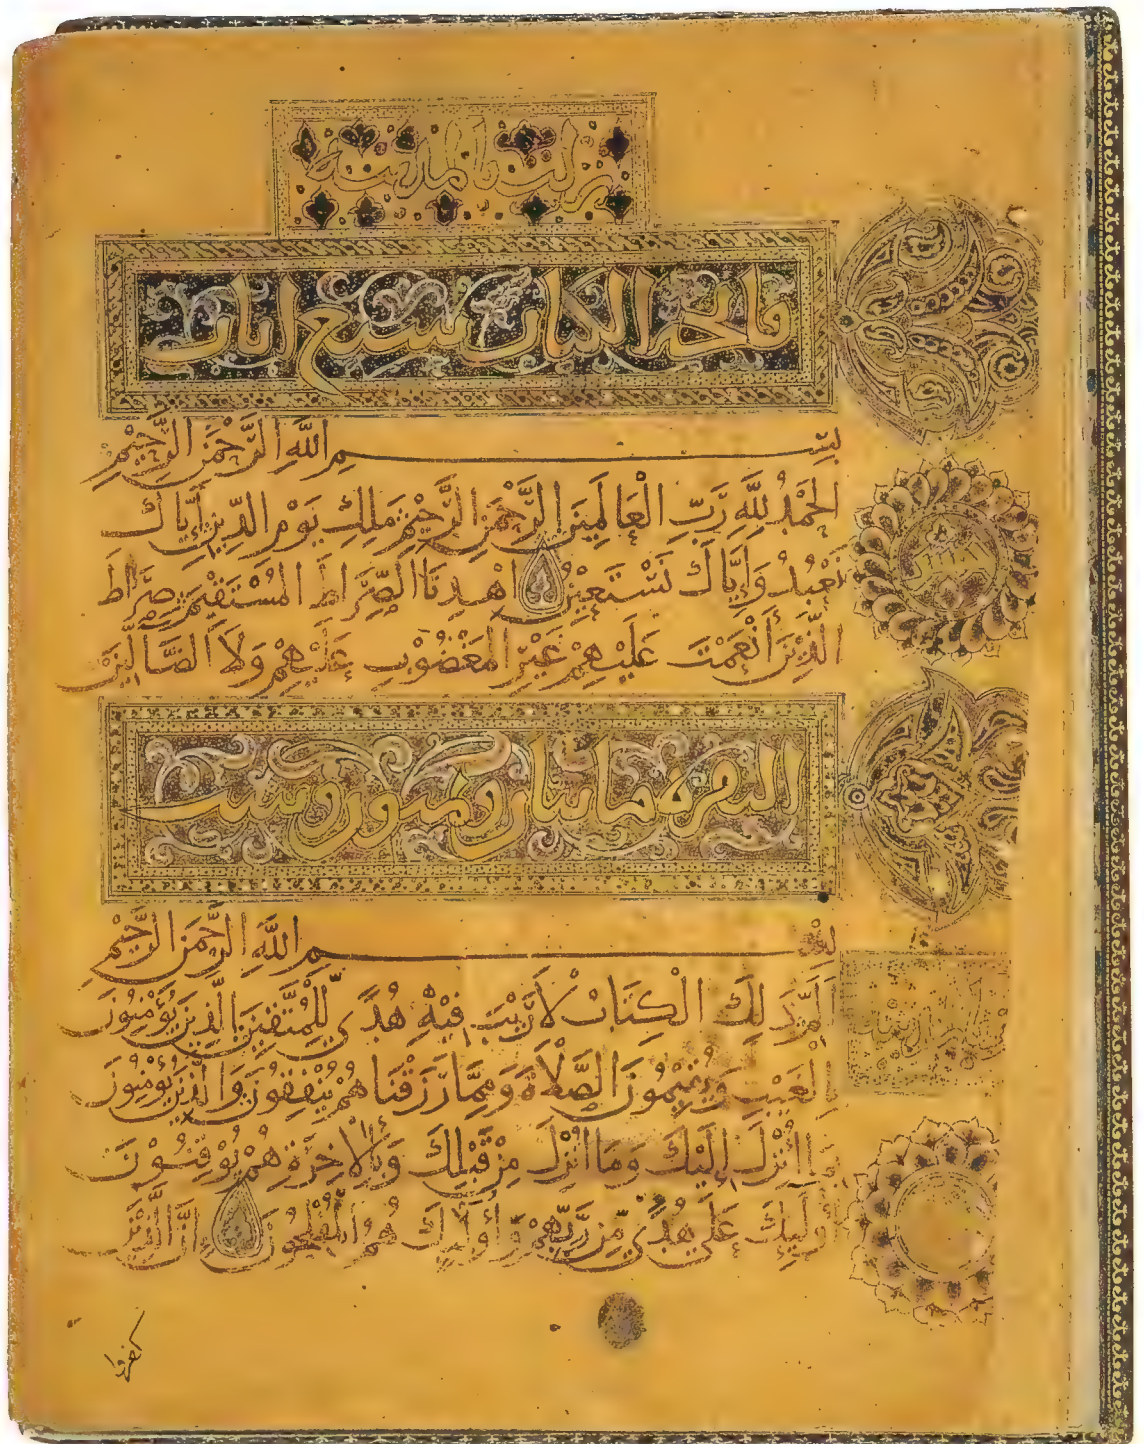 نزلت بالمدينة
فاتحة الكتاب سبع ايات
بِسْمِ اللَّهِ الرَّحْمَنِ الرَّحِيمِ
الْحَمْدُ لِلَّهِ رَبِّ الْعَالَمِينَ الرَّحْمَنِ الرَّحِيمِ مَلِكِ يَوْمِ الدِّينِ إِيَّاكَ
نَعْبُدُ وَإِيَّاكَ نَسْتَعِينُ اهْدِنَا الصِّرَاطَ الْمُسْتَقِيمَ صِرَاطَ
الَّذِينَ أَنْعَمْتَ عَلَيْهِمْ غَيْرِ الْمَغْضُوبِ عَلَيْهِمْ وَلَا الضَّالِّينَ
البقره مايتان وثمانون وست
بِسْمِ اللَّهِ الرَّحْمَنِ الرَّحِيمِ
الم ذَلِكَ الْكِتَابُ لَا رَيْبَ فِيهِ هُدًى لِلْمُتَّقِينَ الَّذِينَ يُؤْمِنُونَ
بِالْغَيْبِ وَيُقِيمُونَ الصَّلَاةَ وَمِمَّا رَزَقْنَاهُمْ يُنْفِقُونَ وَالَّذِينَ يُؤْمِنُونَ
بِمَا أُنْزِلَ إِلَيْكَ وَمَا أُنْزِلَ مِنْ قَبْلِكَ وَبِالْآخِرَةِ هُمْ يُوقِنُونَ
أُولَئِكَ عَلَى هُدًى مِنْ رَبِّهِمْ وَأُولَئِكَ هُمُ الْمُفْلِحُونَ إِنَّ الَّذِينَ
كفروا